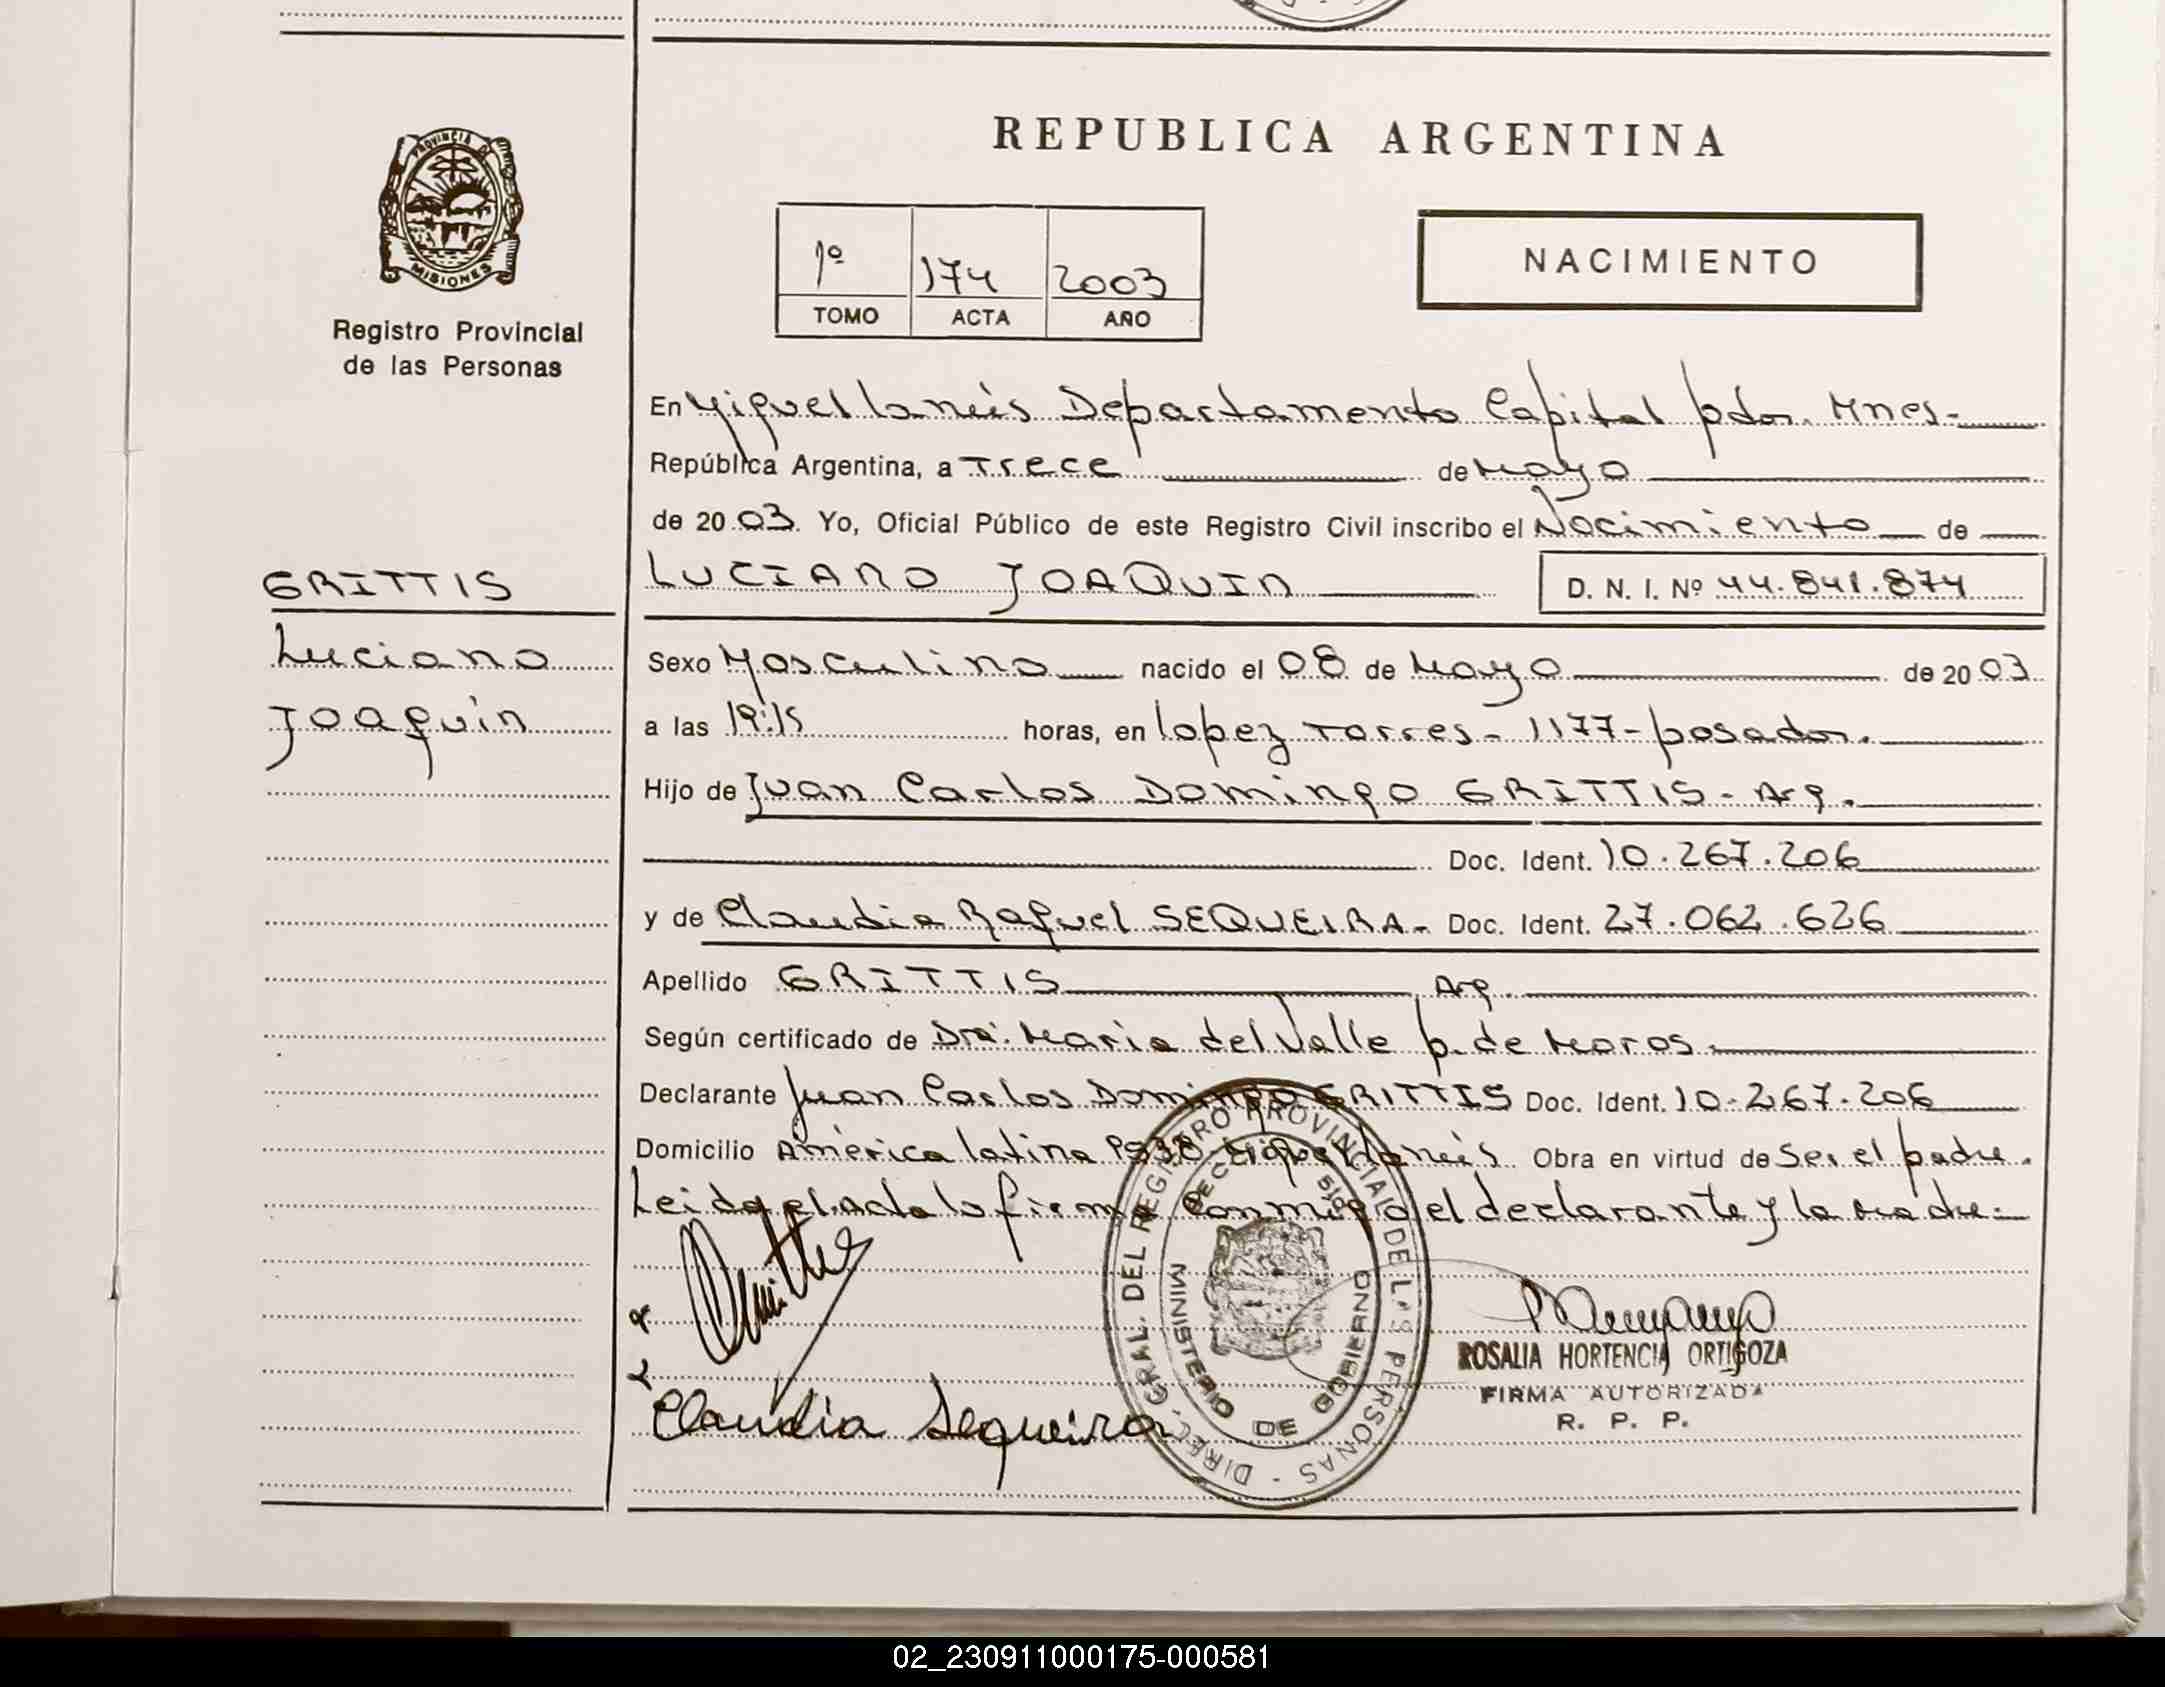 REPUBLICA ARGENTINA
PROVINCIA DE
MISIONES
Registro Provincial
de las Personas
1º 174 2003
TOMO ACTA AÑO
NACIMIENTO
En Miguel Lanús Departamento Capital pdas. Mnes.
República Argentina, a Trece de Mayo
de 2003. Yo, Oficial Público de este Registro Civil inscribo el Nacimiento de
GRITTIS
Luciano
Joaquin
LUCIANO JOAQUIN D. N. I. Nº 44.841.874
Sexo Masculino nacido el 08 de Mayo de 2003
a las 19:15 horas, en Lopez Torres - 1177 - posadas.
Hijo de Juan Carlos Domingo GRITTIS - Arg.
Doc. Ident. 10.267.206
y de Claudia Raquel SEQUEIRA. Doc. Ident. 27.062.626
Apellido GRITTIS Arg.
Según certificado de Dra. Maria del Valle p. de Moros.
Declarante Juan Carlos Domingo GRITTIS Doc. Ident. 10.267.206
Domicilio América latina Miguel Lanús. Obra en virtud de Ser el padre.
Leida el Acta la firma Conmigo el declarante y la Madre.
Claudia Sequeira
DIREC. GRAL. DEL REGISTRO PROVINCIAL DE LAS PERSONAS
MINISTERIO DE GOBIERNO
ROSALIA HORTENCIA ORTIGOZA
FIRMA AUTORIZADA
R. P. P.
02_230911000175-000581